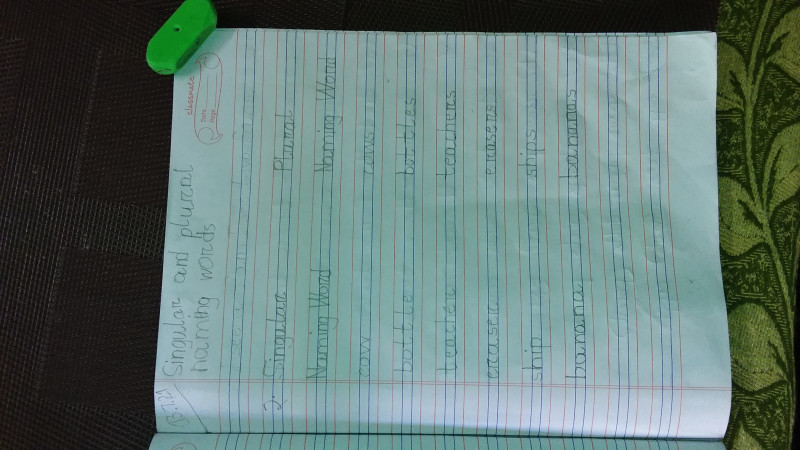 classmate
Date
Page
Singular and plural
naming words
2. Singular Plural
Naming Word Naming Word
cow cows
bottle bottles
teacher teachers
eraser erasers
ship ships
banana bananas